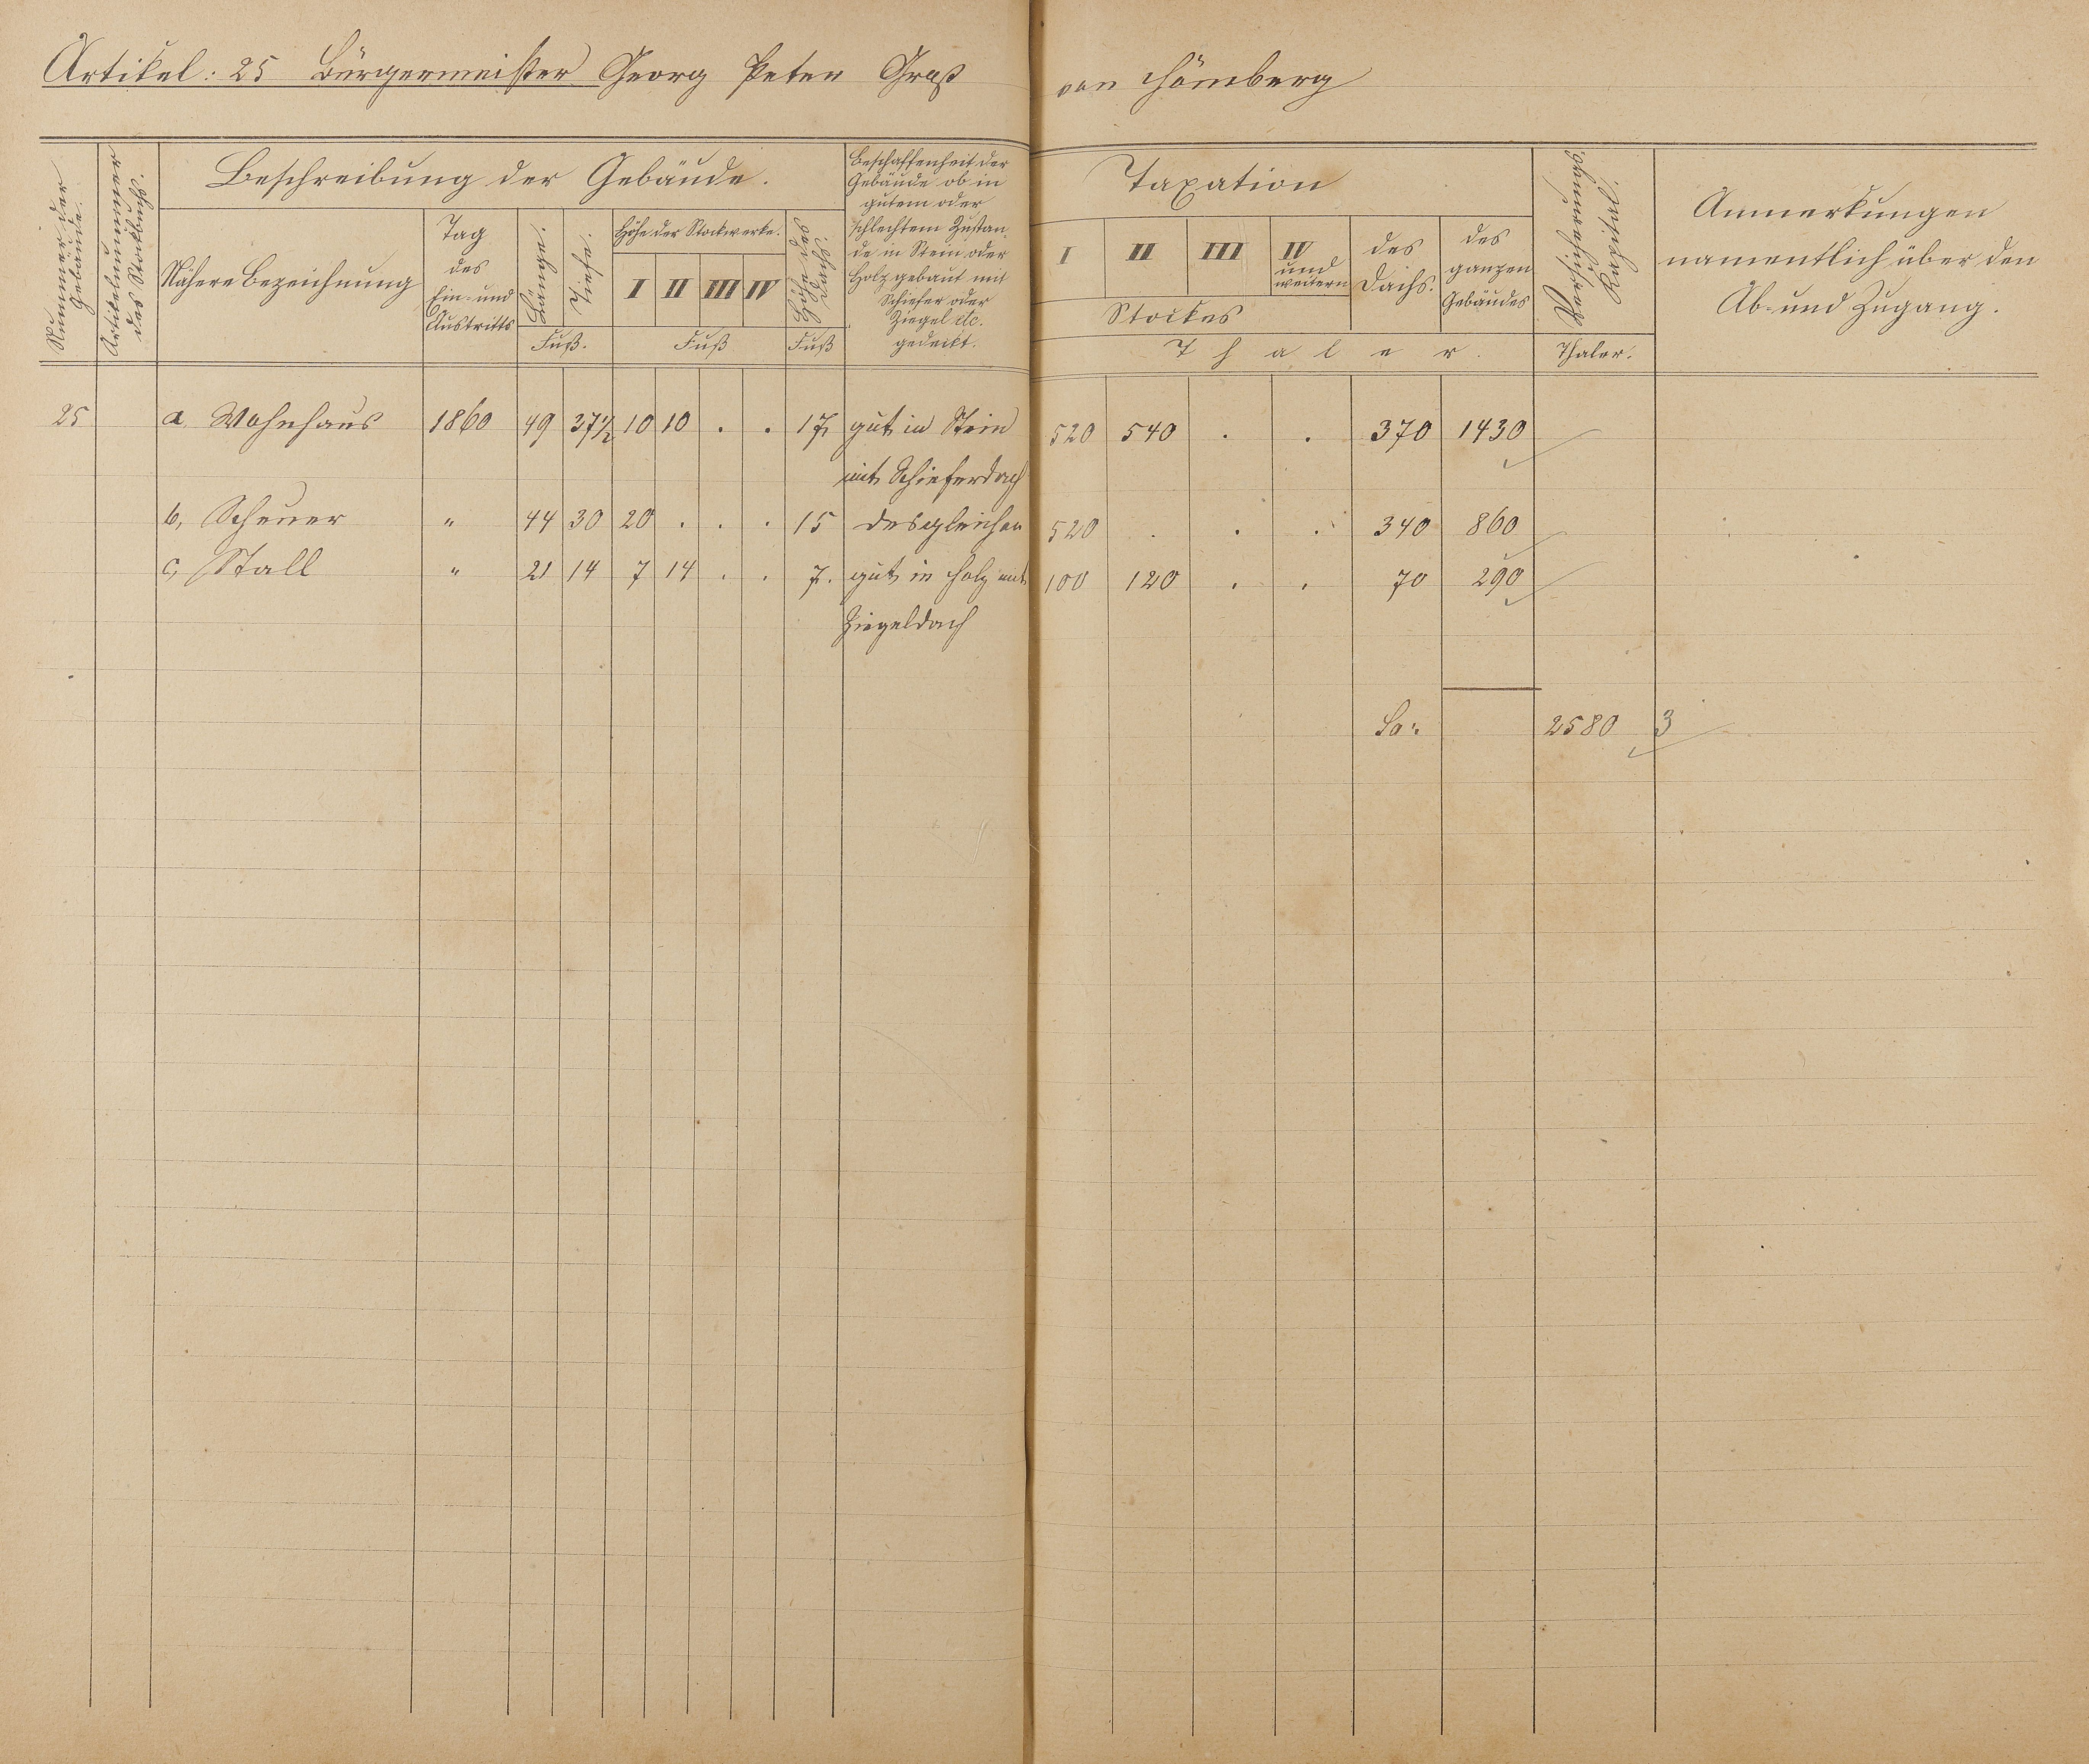 Artikel: 25 Bürgermeister Georg Peter Groß von Hömberg
Nummer der Gebäude.
Artikelnummer des Stockbuchs.
Beschreibung der Gebäude.
Nähere Bezeichnung
Tag
des
Ein- und
Austritts
Länge.
Tiefe.
Fuß.
Höhe der Stockwerke.
I II III IV
Fuß
Höhe des Dachs.
Fuß
Beschaffenheit der
Gebäude ob in
gutem oder
schlechtem Zustan-
de in Stein oder
Holz gebaut mit
Schiefer oder
Ziegel etc.
gedeckt.
Taxation
I II III IV
und
weitern
Stockes
des
Dachs.
des
ganzen
Gebäudes
Thaler.
Versicherungs-
Kapital.
Thaler.
Anmerkungen
namentlich über den
Ab- und Zugang.
25 a. Wohnhaus 1860 49 37½ 10 10 . . 17 gut in Stein 520 540 . . 370 1430
mit Schieferdach
b, Scheuer " 44 30 20 . . . 15 desgleichen 520 . . . 340 860
c, Stall " 21 14 7 14 . . 7. gut in Holz mit 100 120 . . 70 290
Ziegeldach
Sa: 2580 3